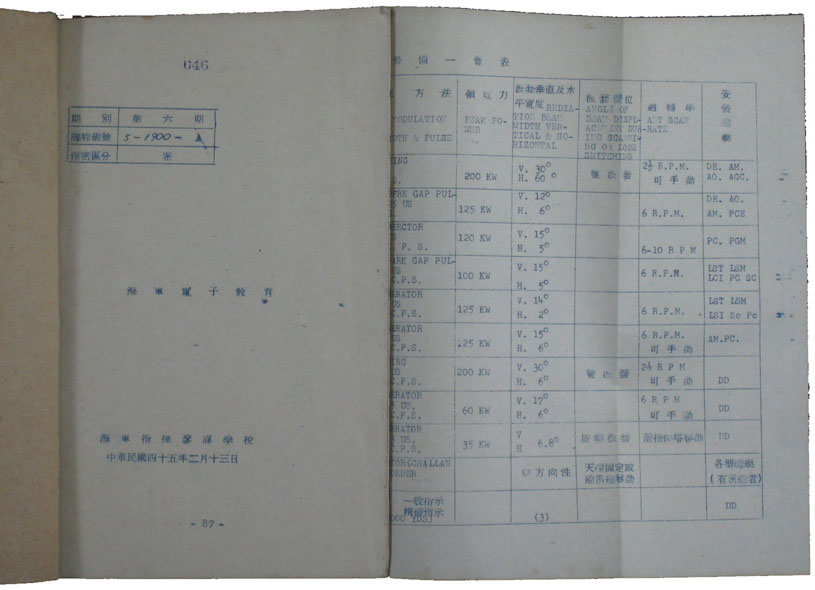 646
期 別 第 六 期
課程編號 S-1900-
保密區分 密
海 軍 電 子 教 育
海 軍 指 揮 參 謀 學 校
中華民國四十五年二月十三日
- 87 -
圖 一 覽 表
方 法
MODULATION
WIDTH & PULSE
PEAK POWER
波束垂直及水平寬度 RADIATION BEAM WIDTH VERTICAL & HORIZONTAL
ANGLE OF BEAM DISPLACEMENT DURING SCANNING OR LOBE SWITCHING
ANT SCAN RATE
安裝
200 KW V. 30° H. 60° 2½ R.P.M. 可手動 DE. AM. AO. AGC.
SPARK GAP PUL- US 125 KW V. 12° H. 6° 6 R.P.M. DE. AO. AM. PCE
P. S. 120 KW V. 15° H. 5° 6-10 R P M PC. PGM
SPARK GAP PUL- US C.P.S. 100 KW V. 15° H. 5° 6 R.P.M. LST LSM LCI PC SC
ERATOR US C.P.S. 125 KW V. 14° H. 2° 6 R.P.M. LST LSM LSI Sc Pc
ERATOR US C.P.S. 125 KW V. 15° H. 6° 6 R.P.M. 可手動 AM.PC.
US C.P.S. 200 KW V. 30° H. 6° 2½ R P M 可手動 DD
ERATOR US. C.P.S. 60 KW V. 17° H. 6° 6 R P M 可手動 DD
ERATOR US. C.P.S. 35 KW V H 6.8° DD
方向性 天線固定或 各型艦艇
一般指示
精確指示
000 YDS) (3) DD